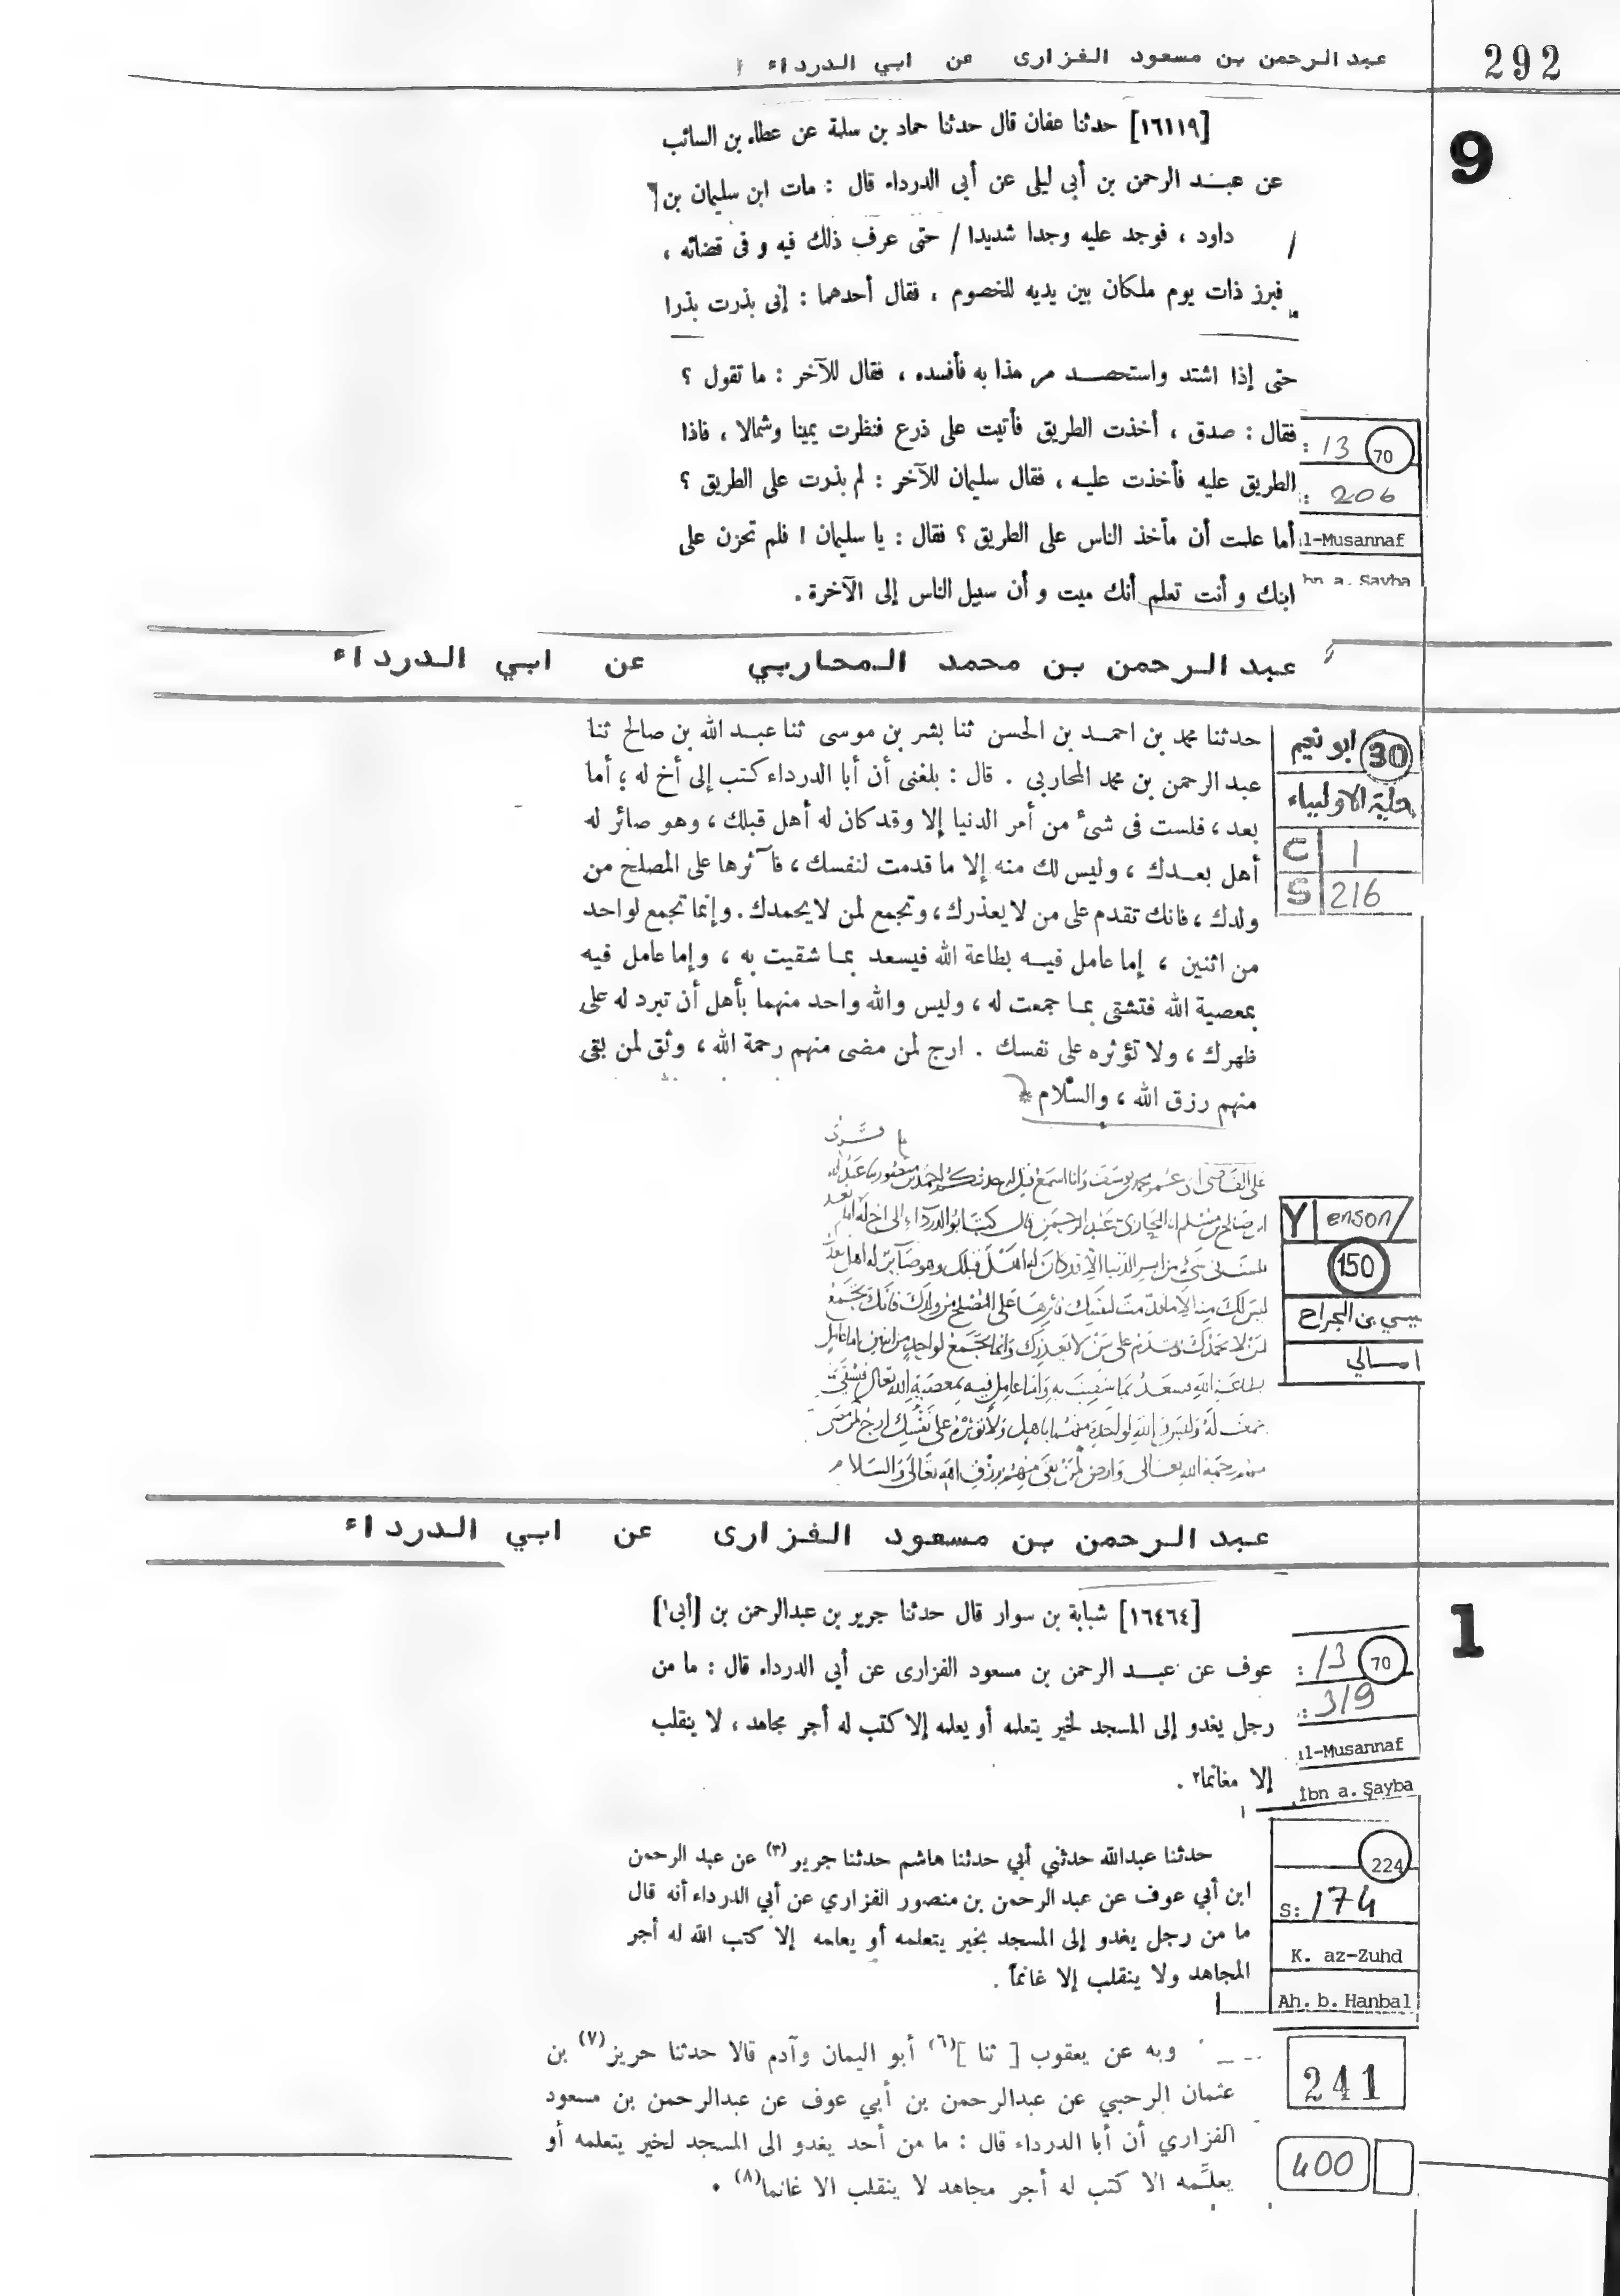 292
عبد الرحمن بن مسعود الفزارى عن ابي الدرداء
9
[١٦١١٩] حدثنا عفان قال حدثنا حماد بن سلمة عن عطاء بن السائب
عن عبد الرحمن بن أبى ليلى عن أبى الدرداء قال : مات ابن سليمان بن
داود ، فوجد عليه وجدا شديدا / حتى عرف ذلك فيه و فى قضائه ،
فبرز ذات يوم ملكان بين يديه للخصوم ، فقال أحدهما : إنى بذرت بذرا
حتى إذا اشتد واستحصد مر هذا به فأفسده ، فقال للآخر : ما تقول ؟
فقال : صدق ، أخذت الطريق فأتيت على ذرع فنظرت يمينا وشمالا ، فاذا
الطريق عليه فأخذت عليه ، فقال سليمان للآخر : لم بذرت على الطريق ؟
أما علمت أن مأخذ الناس على الطريق ؟ فقال : يا سليمان ! فلم تحزن على
ابنك و أنت تعلم أنك ميت و أن سبيل الناس إلى الآخرة .
: 13 70
: 206
al-Musannaf
Ibn a. Şayba
عبد الرحمن بن محمد المحاربي عن ابي الدرداء
30 ابو نعيم
حلية الاولياء
C 1
S 216
حدثنا محمد بن احمد بن الحسن ثنا بشر بن موسى ثنا عبد الله بن صالح ثنا
عبد الرحمن بن محمد المحاربى . قال : بلغنى أن أبا الدرداء كتب إلى أخ له ؛ أما
بعد ، فلست فى شىء من أمر الدنيا إلا وقد كان له أهل قبلك ، وهو صائر له
أهل بعدك ، وليس لك منه إلا ما قدمت لنفسك ، فآثرها على المصلح من
ولدك ، فانك تقدم على من لا يعذرك ، وتجمع لمن لا يحمدك . وإنما تجمع لواحد
من اثنين ، إما عامل فيه بطاعة الله فيسعد بما شقيت به ، وإما عامل فيه
بمعصية الله فتشقى بما جمعت له ، وليس والله واحد منهما بأهل أن تبرد له على
ظهرك ، ولا تؤثره على نفسك . ارج لمن مضى منهم رحمة الله ، وثق لمن بقى
منهم رزق الله ، والسلام *
Y enson
150
عيسي بن الجراح
امالي
على القاضى محمد بن يوسف وانا اسمع قيل له حدثكم احمد بن منصور عبد الله
بن صالح بن مسلم المحاربي عبد الرحمن قال كتب ابو الدرداء الى اخ له اما بعد
فلست فى شىء من امر الدنيا الا قد كان له اهل قبلك وهو صائر له اهل بعدك
ليس لك منه الا ما قدمت لنفسك فاثرها على المصلح من ولدك فانك تجمع
لمن لا يحمدك وتقدم على من لا يعذرك وانما تجمع لواحد من اثنين اما عامل
بطاعة الله فيسعد بما شقيت به واما عامل فيه بمعصية الله تعالى فتشقى
جمعت له وليس والله لواحد منهما باهل ولا تؤثره على نفسك ارج لمن مضى
منهم رحمة الله تعالى وارض لمن بقى منهم برزق الله تعالى والسلام
عبد الرحمن بن مسعود الفزارى عن ابي الدرداء
1
[١٦٤٦٤] شبابة بن سوار قال حدثنا جرير بن عبدالرحمن بن [أبى١]
عوف عن عبد الرحمن بن مسعود الفزارى عن أبى الدرداء قال : ما من
رجل يغدو إلى المسجد لخير يتعلمه أو يعلمه إلا كتب له أجر مجاهد ، لا ينقلب
إلا مغانما٢ .
: 13 70
: 319
al-Musannaf
Ibn a. Şayba
حدثنا عبدالله حدثني أبي حدثنا هاشم حدثنا جرير (٣) عن عبد الرحمن
ابن أبي عوف عن عبد الرحمن بن منصور الفزاري عن أبي الدرداء أنه قال
ما من رجل يغدو إلى المسجد بخير يتعلمه أو يعلمه إلا كتب الله له أجر
المجاهد ولا ينقلب إلا غانماً .
224
S: 174
K. az-Zuhd
Ah. b. Hanbal
وبه عن يعقوب [ ثنا ](٦) أبو اليمان وآدم قالا حدثنا حريز(٧) بن
عثمان الرحبي عن عبدالرحمن بن أبي عوف عن عبدالرحمن بن مسعود
الفزاري أن أبا الدرداء قال : ما من أحد يغدو الى المسجد لخير يتعلمه أو
يعلّمه الا كتب له أجر مجاهد لا ينقلب الا غانما(٨) .
241
400